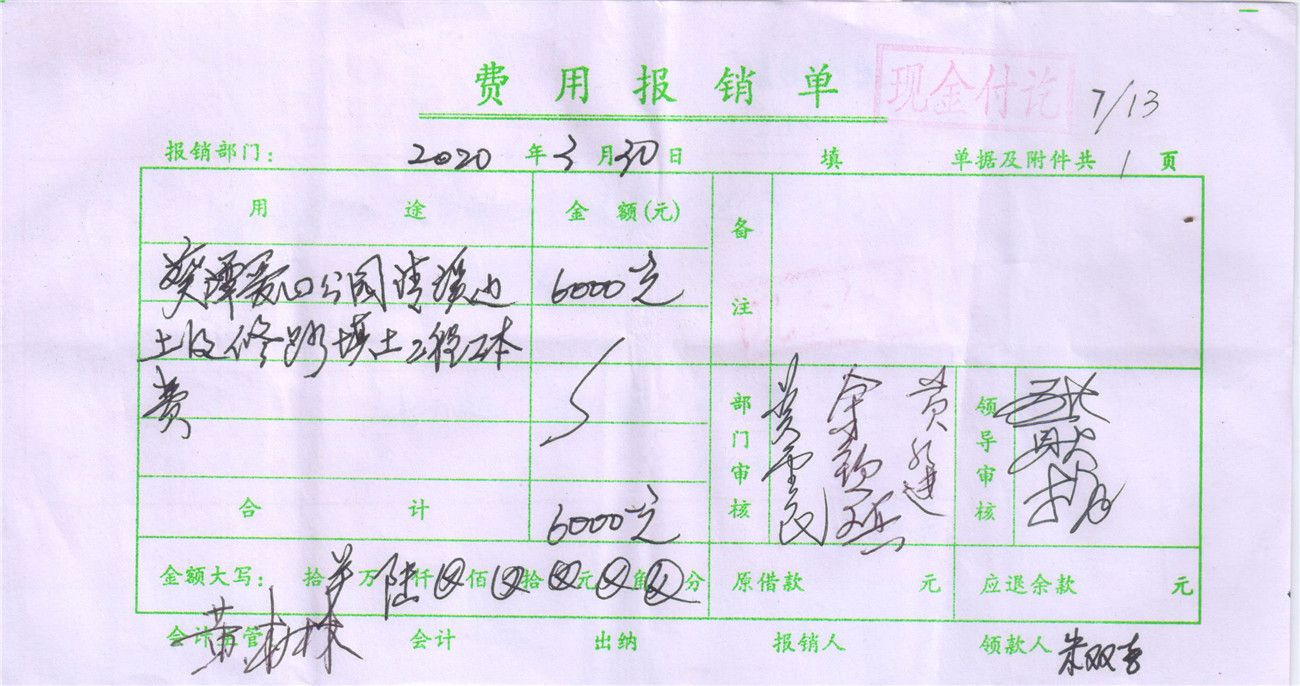 费用报销单
现金付讫
7/13
报销部门： 2020 年 3 月 30 日 填 单据及附件共 1 页
用途 金额(元) 备注
葵潭 公园清溪边 6000元
土段修路填土工程工本
费
部门审核 领导审核
合计 6000元
金额大写： 拾 万陆仟 佰 拾 元 角 分 原借款 元 应退余款 元
会计主管 会计 出纳 报销人 领款人 朱双吉